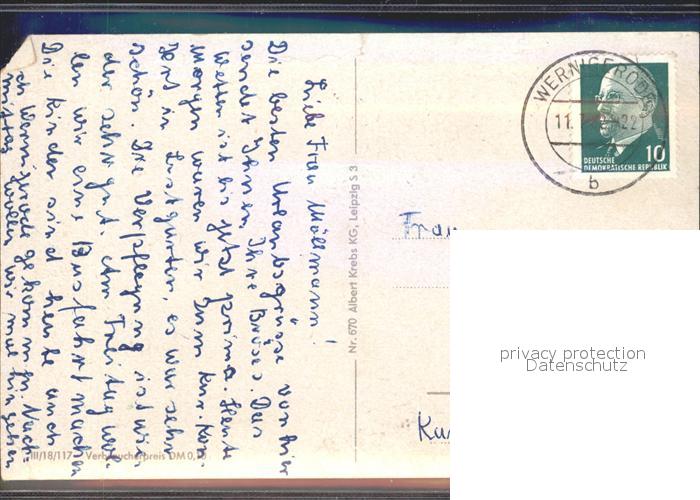 Liebe Frau Möllmann!
Die besten Urlaubsgrüße von hier
sendet Ihnen Ihre Das
Wetter ist bis jetzt prima. Heute
Morgen waren wir zum Kur. Kon-
zert in Lustgarten, es war sehr
schön. Die Verpflegung ist wie-
der sehr gut. Am Freitag wol-
len wir eine Busfahrt machen
Die Kinder sind heute auch
ch Wernigerode gekommen. Nach-
mittag wollen wir mal hin gehen
III/18/117 Verbraucherpreis DM 0,
Nr. 670 Albert Krebs KG, Leipzig S 3
WERNIGERODE
11.
22
b
10
DEUTSCHE
DEMOKRATISCHE REPUBLIK
Frau
privacy protection
Datenschutz